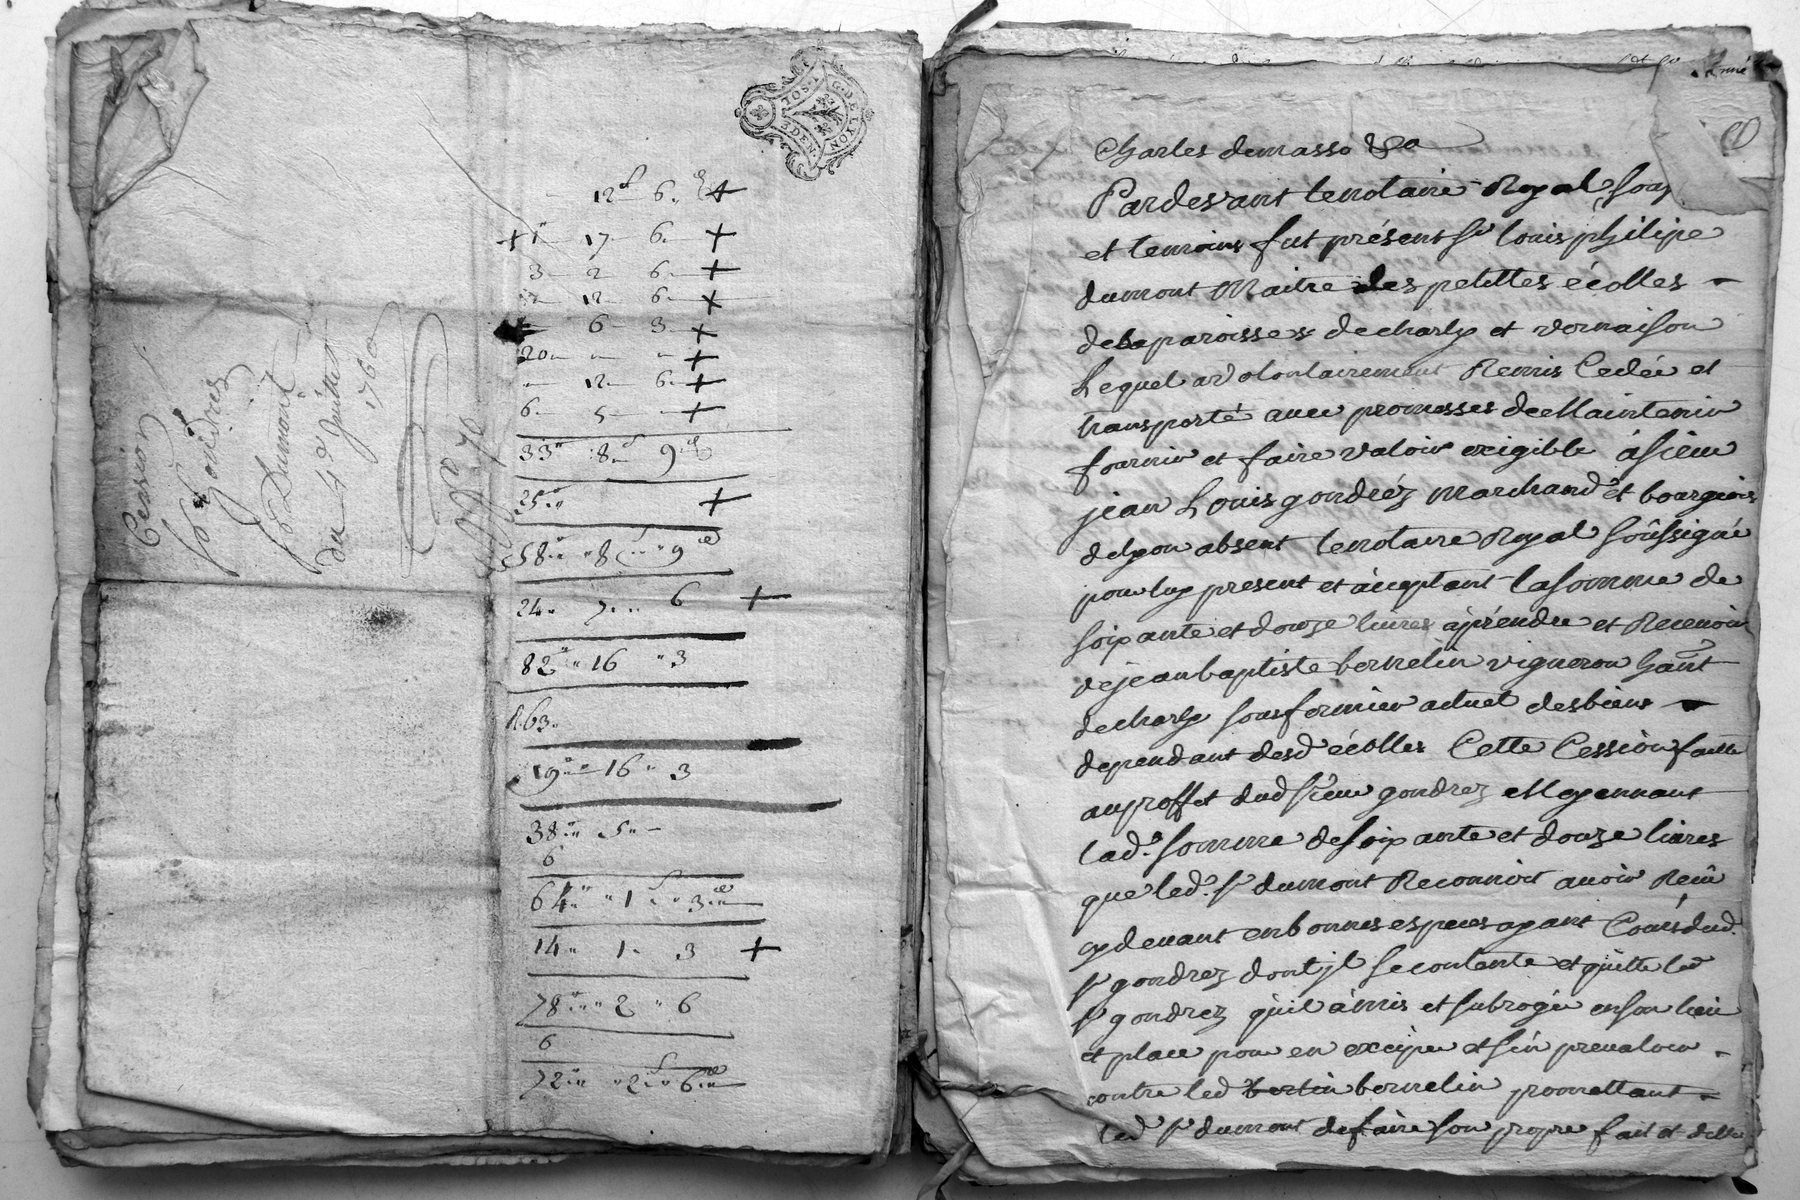 G. DE LYON
1 SOL.
3 DEN.
12 6
1 17 6
3 2 6
12 6
6 3
20
12 6
6 5
33 8 9
25
58 8 9
24 7 6
82 16 3
63
19 16 3
38 5
6
64 1 3
14 1 3
78 2 6
6
72 2 6
Cession
Sr Gondrez
Sr Dumont
du 4e Juillet
1760
No 70
Charles demasso
Pardevant le notaire Royal sous
et temoins fut présent Sr Louis philipe
dumont Maitre des petittes écolles
de la paroisses de charly et vernaison
Lequel a volontairement Remis Cedée et
transporté avec promesses de Maintenir
fournir et faire valoir exigible à sieur
jean Louis gondréz marchand et bourgeois
de lyon absent le notaire Royal soussigné
pour luy present et acceptant la somme de
soixante et douze livres à préndre et Recevoir
de jean baptiste bernelin vigneron hant
de charly sousfermier actuel des biens
dependant desd écolles Cette Cession faitte
au proffet dud sieur gondrez Moyennant
lad. somme de soixante et douze livres
que led. Sr dumont Reconnoit avoir Receu
cy devant en bonnes especes ayant Cours dud.
Sr gondrez dont jl se contente et quitte led
Sr gondrez qu'il à mis et subrogée en son lieu
et place pour en exciper et s'en prevaloir
contre led bertin bernelin promettant
led Sr dumont de faire son propre fait et dette